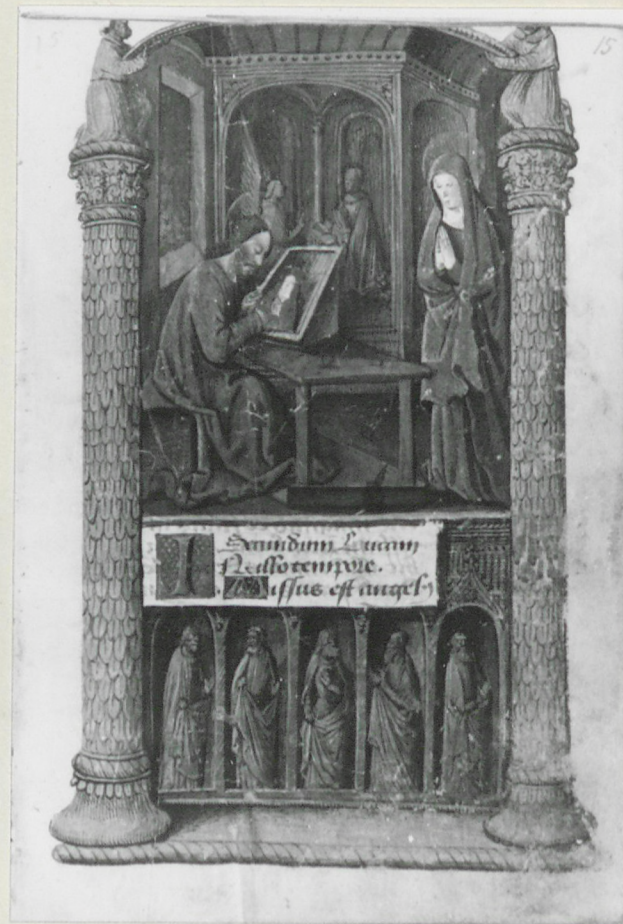 15
Secundum Lucam
In illo tempore.
Missus est angel9